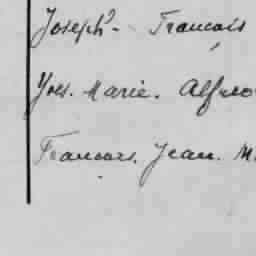 Joseph - Francois
Yves. Marie. Alfre
Francois. Jean. M.